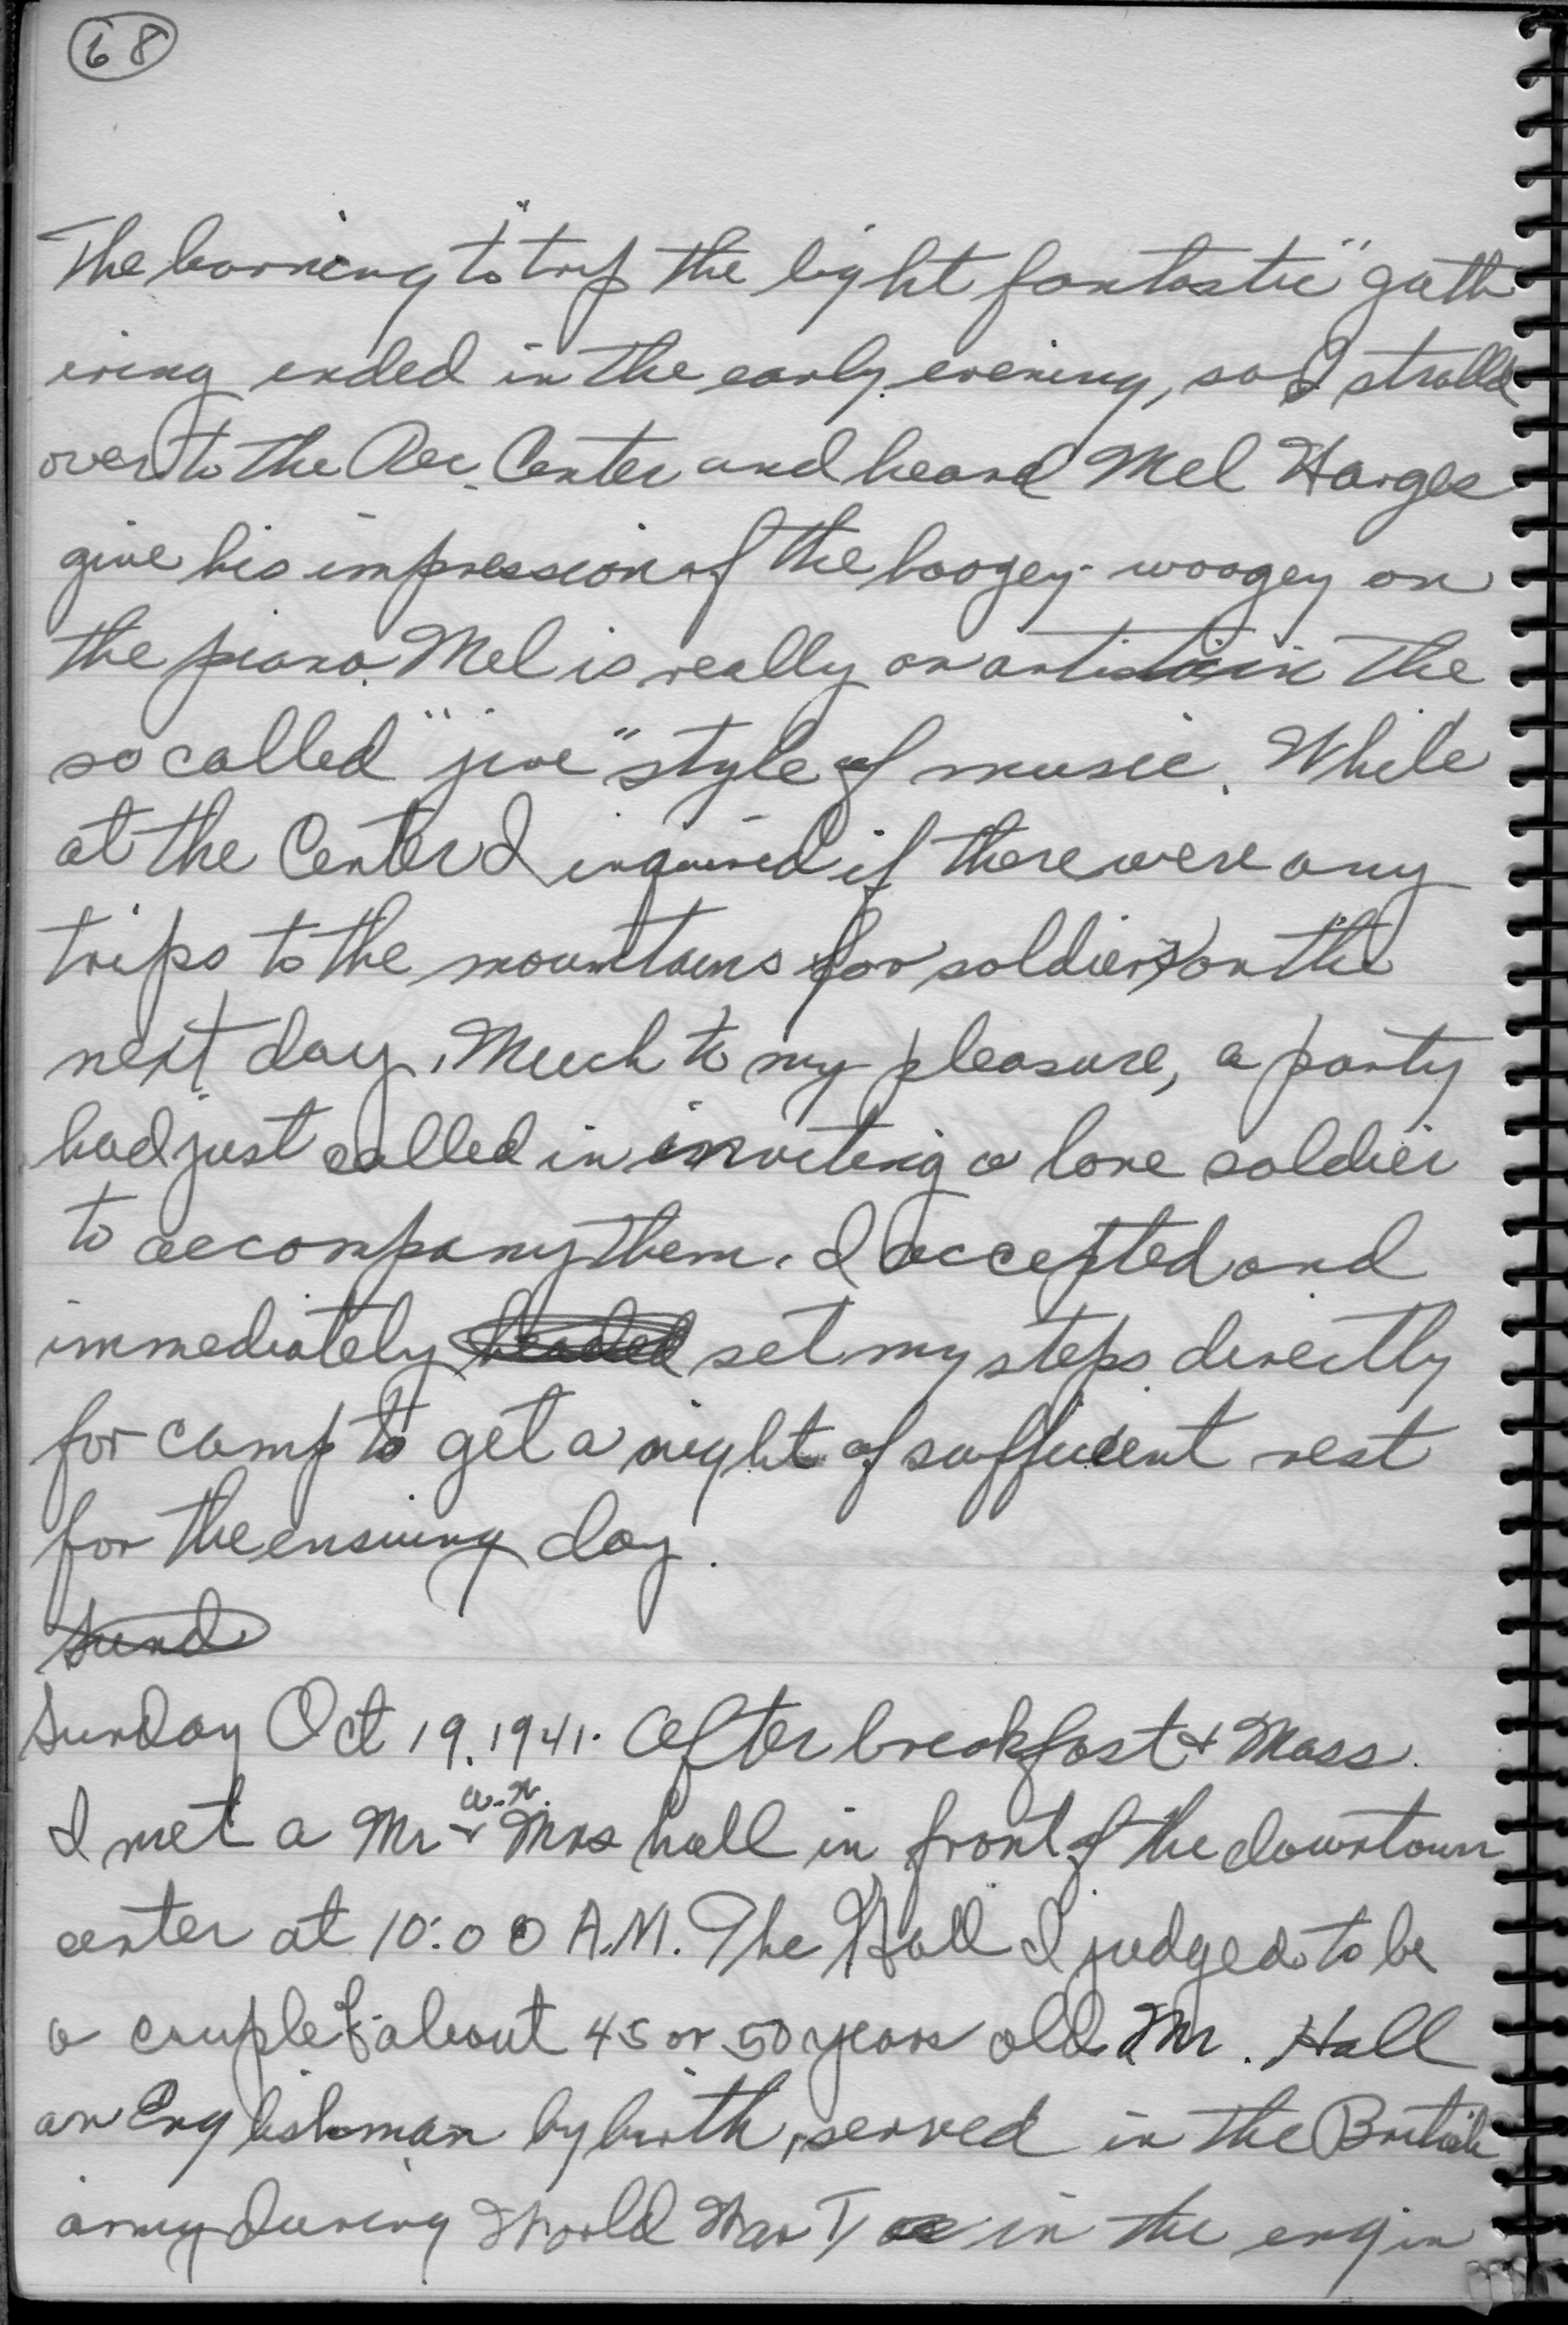 68
The borning to "trip the light fantastic" gath
ering ended in the early evening, so I strolled
over to the Rec. Center and heard Mel Harges
give his impression of the boogey-woogey on
the piano. Mel is really an artist in the
so called "jive" style of music. While
at the Center I inquired if there were any
trips to the mountains for soldiers on the
next day. Much to my pleasure, a party
had just called in inviting a lone soldier
to accompany them. I accepted and
immediately headed set my steps directly
for camp to get a night of sufficient rest
for the ensuing day.
Sund
Sunday Oct 19. 1941. After breakfast & Mass.
I met a Mr & Mrs hall in front of the downtown
center at 10:00 A.M. The Hall I judged to be
a couple of about 45 or 50 years old. Mr. Hall
an Englishman by birth, served in the British
army during World War I in the engin